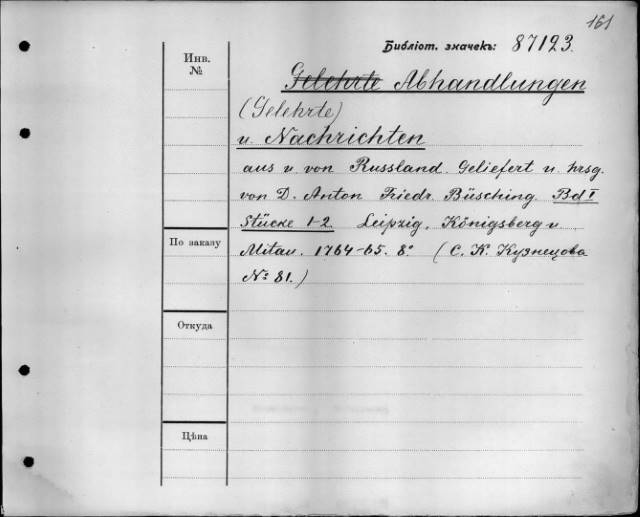 161
Библіот. значекъ: 87123.
Инв.
№
Gelehrte Abhandlungen
(Gelehrte)
u. Nachrichten
aus u. von Russland. Geliefert u. hrsg.
von D. Anton Friedr. Büsching. Bd I
Stücke 1-2. Leipzig, Königsberg u.
По заказу
Mitau. 1764-65. 8º (С. К. Кузнецова
№ 81.)
Откуда
Цѣна